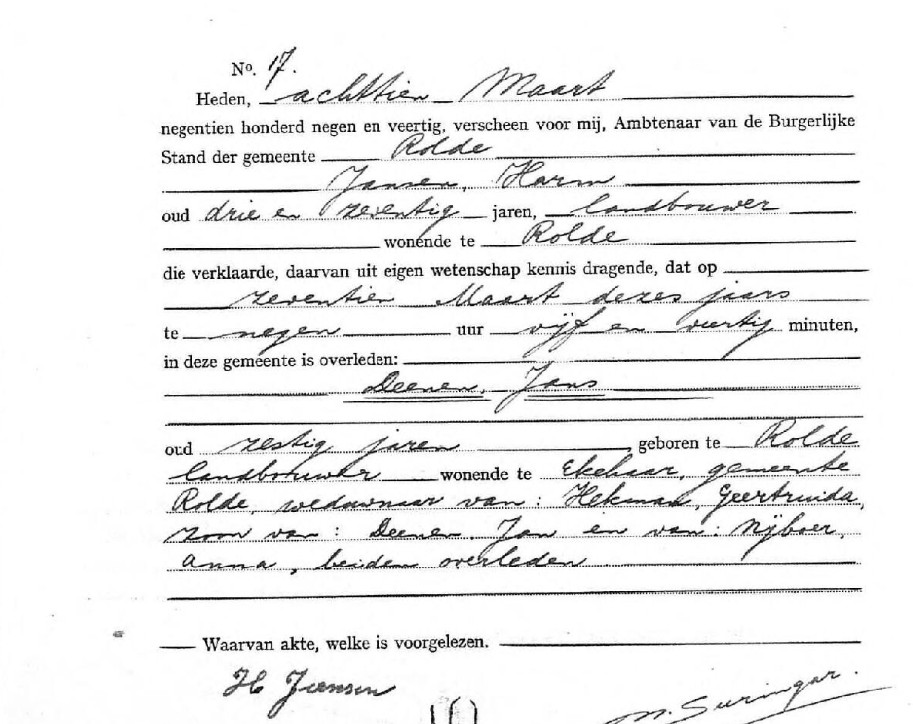 No. 17.
Heden, achttien Maart
negentien honderd negen en veertig, verscheen voor mij, Ambtenaar van de Burgerlijke
Stand der gemeente Rolde
Jansen, Harm
oud drie en zeventig jaren, landbouwer
wonende te Rolde
die verklaarde, daarvan uit eigen wetenschap kennis dragende, dat op
zeventien Maart dezes jaars
te negen uur vijf en veertig minuten,
in deze gemeente is overleden:
Deenen, Jans
oud zestig jaren, geboren te Rolde
landbouwer wonende te Ekehaar, gemeente
Rolde, weduwnaar van: Hekman, Geertruida,
zoon van: Deenen, Jan en van: Nijboer,
Anna, beiden overleden
Waarvan akte, welke is voorgelezen.
H Jansen
M. Suringar.